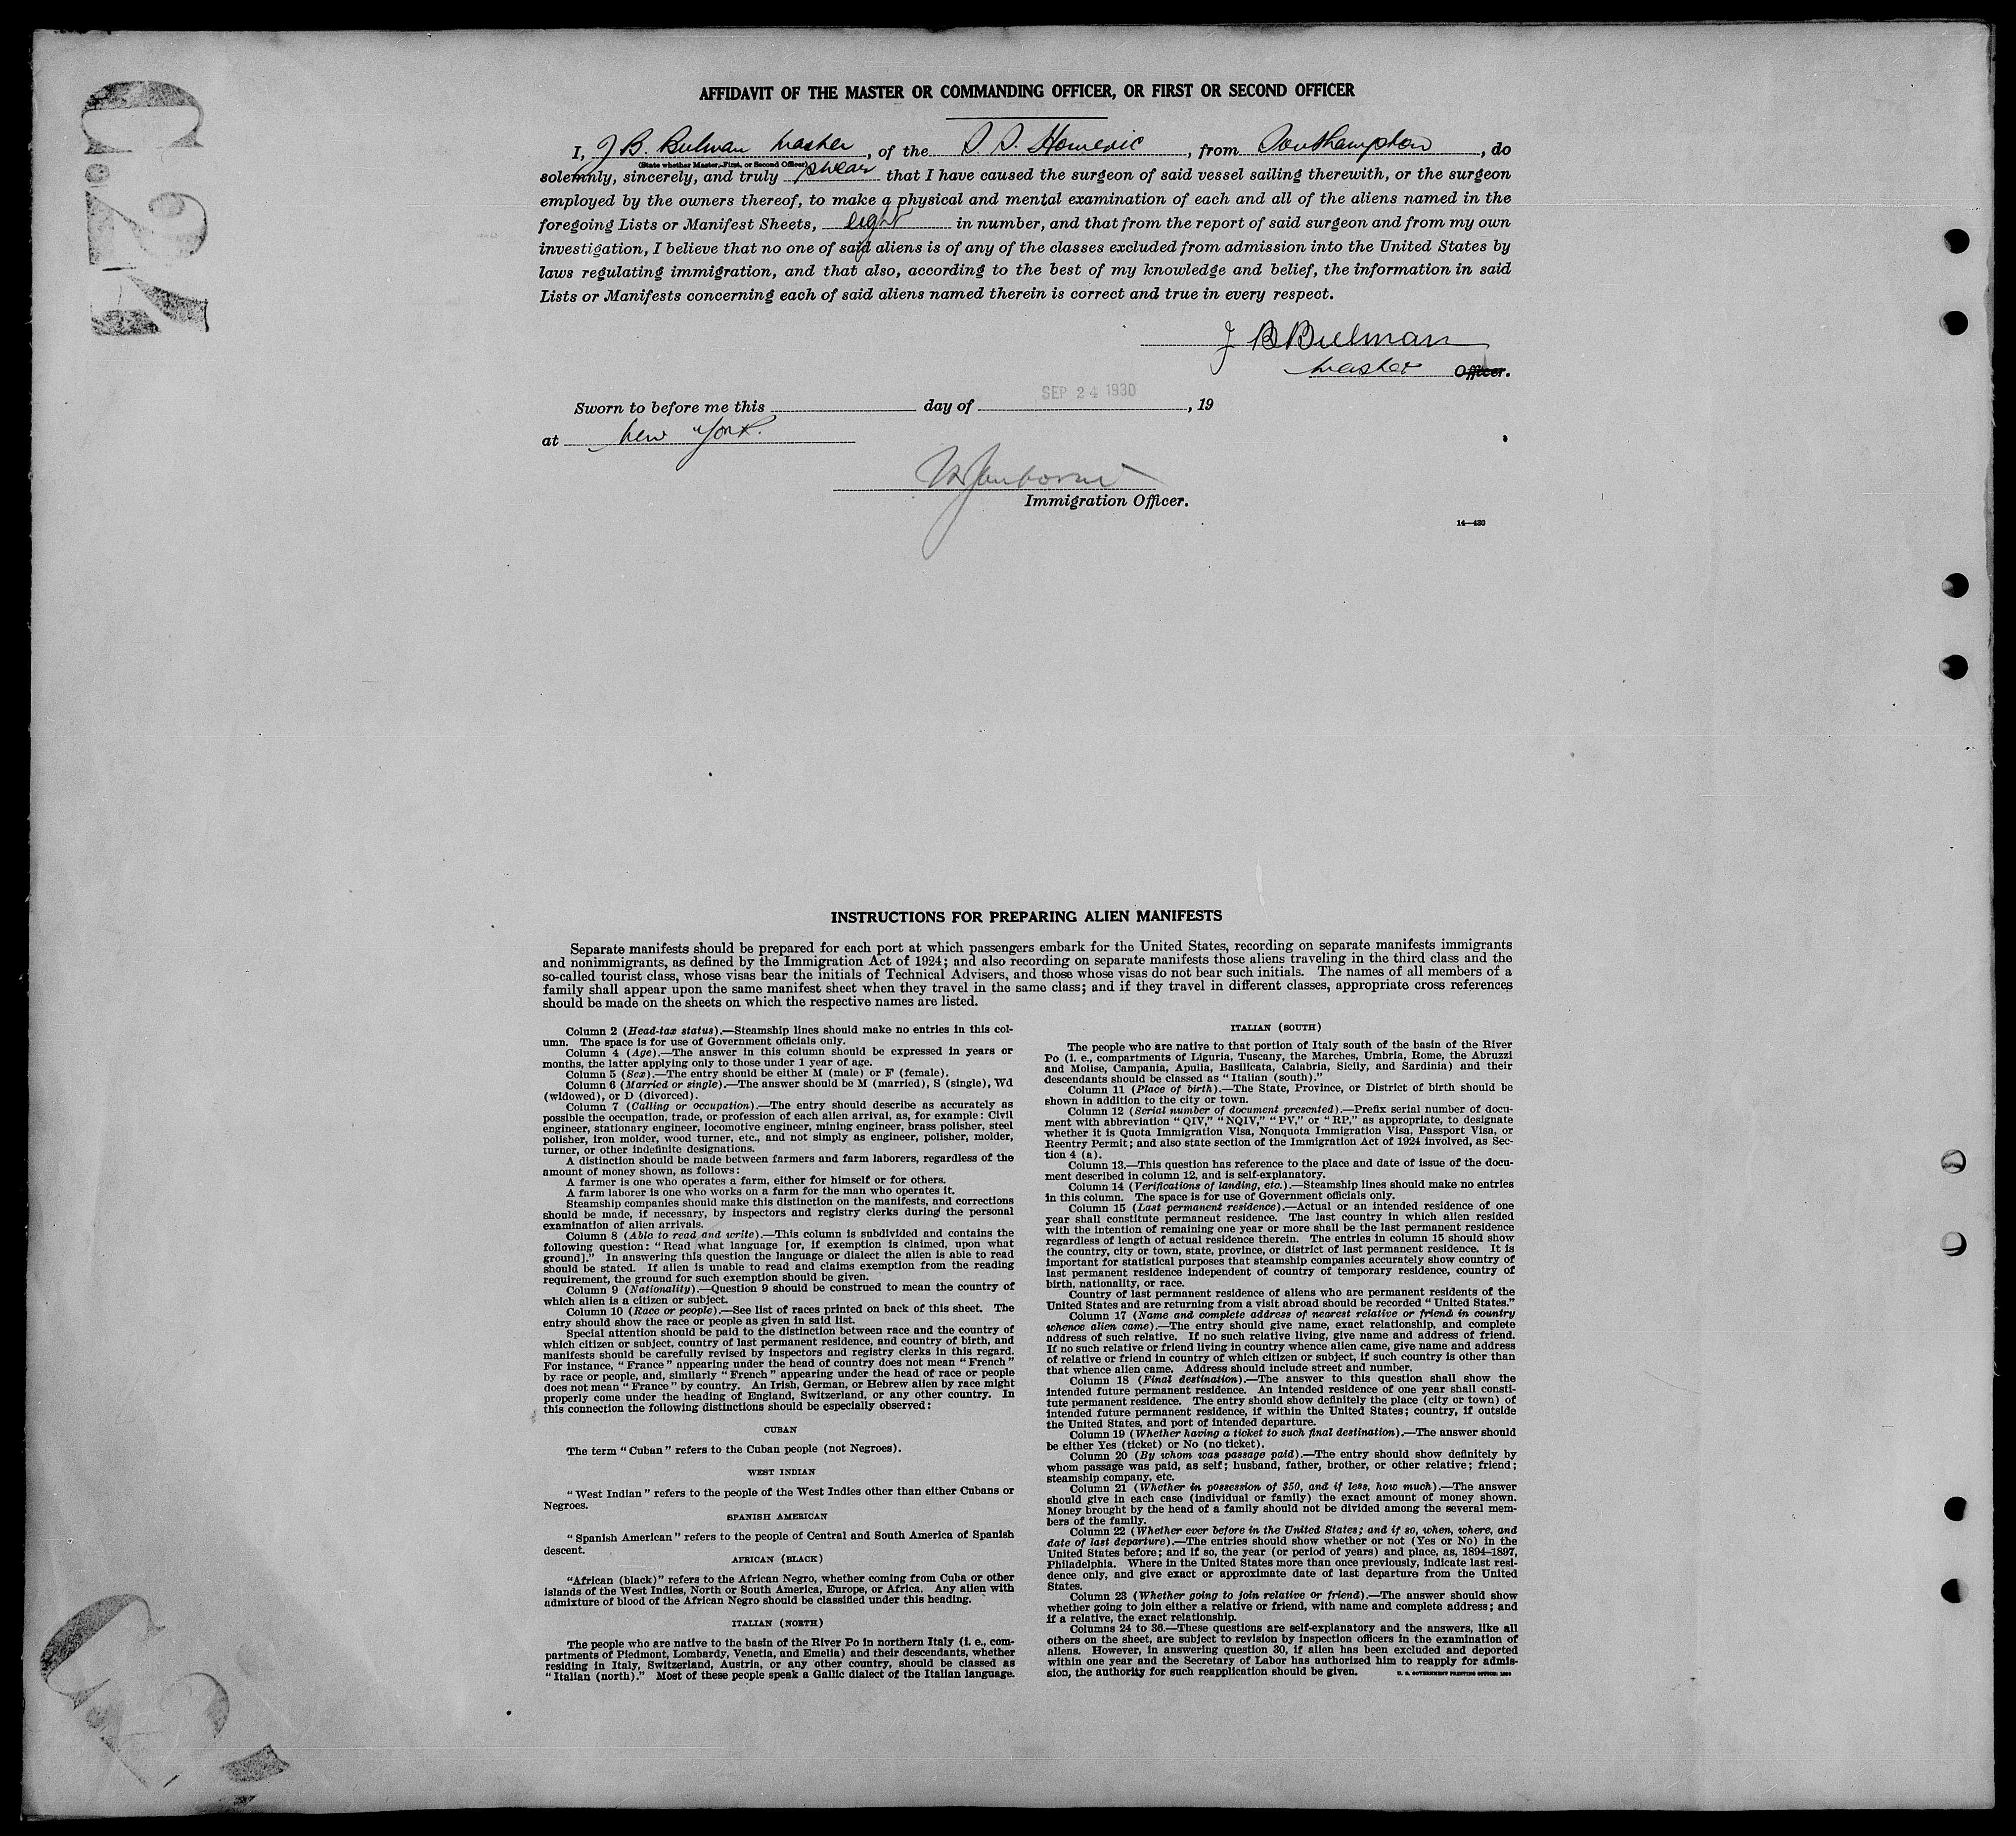 C.24
AFFIDAVIT OF THE MASTER OR COMMANDING OFFICER, OR FIRST OR SECOND OFFICER
I, J B. Bulman Master, of the S. S. Homeric, from Southampton, do
(State whether Master, First, or Second Officer)
solemnly, sincerely, and truly swear that I have caused the surgeon of said vessel sailing therewith, or the surgeon
employed by the owners thereof, to make a physical and mental examination of each and all of the aliens named in the
foregoing Lists or Manifest Sheets, eight in number, and that from the report of said surgeon and from my own
investigation, I believe that no one of said aliens is of any of the classes excluded from admission into the United States by
laws regulating immigration, and that also, according to the best of my knowledge and belief, the information in said
Lists or Manifests concerning each of said aliens named therein is correct and true in every respect.
J B Bulman
Master Officer.
SEP 24 1930
Sworn to before me this day of , 19
at New York.
Immigration Officer.
14—430
INSTRUCTIONS FOR PREPARING ALIEN MANIFESTS
Separate manifests should be prepared for each port at which passengers embark for the United States, recording on separate manifests immigrants
and nonimmigrants, as defined by the Immigration Act of 1924; and also recording on separate manifests those aliens traveling in the third class and the
so-called tourist class, whose visas bear the initials of Technical Advisers, and those whose visas do not bear such initials. The names of all members of a
family shall appear upon the same manifest sheet when they travel in the same class; and if they travel in different classes, appropriate cross references
should be made on the sheets on which the respective names are listed.
Column 2 (Head-tax status).—Steamship lines should make no entries in this col-
umn. The space is for use of Government officials only.
Column 4 (Age).—The answer in this column should be expressed in years or
months, the latter applying only to those under 1 year of age.
Column 5 (Sex).—The entry should be either M (male) or F (female).
Column 6 (Married or single).—The answer should be M (married), S (single), Wd
(widowed), or D (divorced).
Column 7 (Calling or occupation).—The entry should describe as accurately as
possible the occupation, trade, or profession of each alien arrival, as, for example: Civil
engineer, stationary engineer, locomotive engineer, mining engineer, brass polisher, steel
polisher, iron molder, wood turner, etc., and not simply as engineer, polisher, molder,
turner, or other indefinite designations.
A distinction should be made between farmers and farm laborers, regardless of the
amount of money shown, as follows:
A farmer is one who operates a farm, either for himself or for others.
A farm laborer is one who works on a farm for the man who operates it.
Steamship companies should make this distinction on the manifests, and corrections
should be made, if necessary, by inspectors and registry clerks during the personal
examination of alien arrivals.
Column 8 (Able to read and write).—This column is subdivided and contains the
following question: "Read what language [or, if exemption is claimed, upon what
ground]." In answering this question the language or dialect the alien is able to read
should be stated. If alien is unable to read and claims exemption from the reading
requirement, the ground for such exemption should be given.
Column 9 (Nationality).—Question 9 should be construed to mean the country of
which alien is a citizen or subject.
Column 10 (Race or people).—See list of races printed on back of this sheet. The
entry should show the race or people as given in said list.
Special attention should be paid to the distinction between race and the country of
which citizen or subject, country of last permanent residence, and country of birth, and
manifests should be carefully revised by inspectors and registry clerks in this regard.
For instance, "France" appearing under the head of country does not mean "French"
by race or people, and, similarly "French" appearing under the head of race or people
does not mean "France" by country. An Irish, German, or Hebrew alien by race might
properly come under the heading of England, Switzerland, or any other country. In
this connection the following distinctions should be especially observed:
CUBAN
The term "Cuban" refers to the Cuban people (not Negroes).
WEST INDIAN
"West Indian" refers to the people of the West Indies other than either Cubans or
Negroes.
SPANISH AMERICAN
"Spanish American" refers to the people of Central and South America of Spanish
descent.
AFRICAN (BLACK)
"African (black)" refers to the African Negro, whether coming from Cuba or other
islands of the West Indies, North or South America, Europe, or Africa. Any alien with
admixture of blood of the African Negro should be classified under this heading.
ITALIAN (NORTH)
The people who are native to the basin of the River Po in northern Italy (i. e., com-
partments of Piedmont, Lombardy, Venetia, and Emelia) and their descendants, whether
residing in Italy, Switzerland, Austria, or any other country, should be classed as
"Italian (north)." Most of these people speak a Gallic dialect of the Italian language.
ITALIAN (SOUTH)
The people who are native to that portion of Italy south of the basin of the River
Po (i. e., compartments of Liguria, Tuscany, the Marches, Umbria, Rome, the Abruzzi
and Molise, Campania, Apulia, Basilicata, Calabria, Sicily, and Sardinia) and their
descendants should be classed as "Italian (south)."
Column 11 (Place of birth).—The State, Province, or District of birth should be
shown in addition to the city or town.
Column 12 (Serial number of document presented).—Prefix serial number of docu-
ment with abbreviation "QIV," "NQIV," "PV," or "RP," as appropriate, to designate
whether it is Quota Immigration Visa, Nonquota Immigration Visa, Passport Visa, or
Reentry Permit; and also state section of the Immigration Act of 1924 involved, as Sec-
tion 4 (a).
Column 13.—This question has reference to the place and date of issue of the docu-
ment described in column 12, and is self-explanatory.
Column 14 (Verifications of landing, etc.).—Steamship lines should make no entries
in this column. The space is for use of Government officials only.
Column 15 (Last permanent residence).—Actual or an intended residence of one
year shall constitute permanent residence. The last country in which alien resided
with the intention of remaining one year or more shall be the last permanent residence
regardless of length of actual residence therein. The entries in column 15 should show
the country, city or town, state, province, or district of last permanent residence. It is
important for statistical purposes that steamship companies accurately show country of
last permanent residence independent of country of temporary residence, country of
birth, nationality, or race.
Country of last permanent residence of aliens who are permanent residents of the
United States and are returning from a visit abroad should be recorded "United States."
Column 17 (Name and complete address of nearest relative or friend in country
whence alien came).—The entry should give name, exact relationship, and complete
address of such relative. If no such relative living, give name and address of friend.
If no such relative or friend living in country whence alien came, give name and address
of relative or friend in country of which citizen or subject, if such country is other than
that whence alien came. Address should include street and number.
Column 18 (Final destination).—The answer to this question shall show the
intended future permanent residence. An intended residence of one year shall consti-
tute permanent residence. The entry should show definitely the place (city or town) of
intended future permanent residence, if within the United States; country, if outside
the United States, and port of intended departure.
Column 19 (Whether having a ticket to such final destination).—The answer should
be either Yes (ticket) or No (no ticket).
Column 20 (By whom was passage paid).—The entry should show definitely by
whom passage was paid, as self; husband, father, brother, or other relative; friend;
steamship company, etc.
Column 21 (Whether in possession of $50, and if less, how much).—The answer
should give in each case (individual or family) the exact amount of money shown.
Money brought by the head of a family should not be divided among the several mem-
bers of the family.
Column 22 (Whether ever before in the United States; and if so, when, where, and
date of last departure).—The entries should show whether or not (Yes or No) in the
United States before; and if so, the year (or period of years) and place, as, 1894–1897,
Philadelphia. Where in the United States more than once previously, indicate last resi-
dence only, and give exact or approximate date of last departure from the United
States.
Column 23 (Whether going to join relative or friend).—The answer should show
whether going to join either a relative or friend, with name and complete address; and
if a relative, the exact relationship.
Columns 24 to 36.—These questions are self-explanatory and the answers, like all
others on the sheet, are subject to revision by inspection officers in the examination of
aliens. However, in answering question 30, if alien has been excluded and deported
within one year and the Secretary of Labor has authorized him to reapply for admis-
sion, the authority for such reapplication should be given.
U. S. GOVERNMENT PRINTING OFFICE: